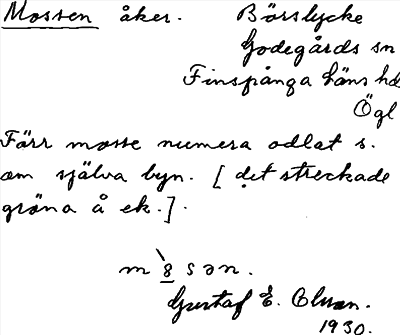 Mossen åker. Börslycke
Godegårds sn
Finspånga läns hd
Ögl
Förr mosse numera odlat s.
om själva byn. [ det streckade
gröna å ek.].
m`8sən.
Gustaf E. Olson.
1930.